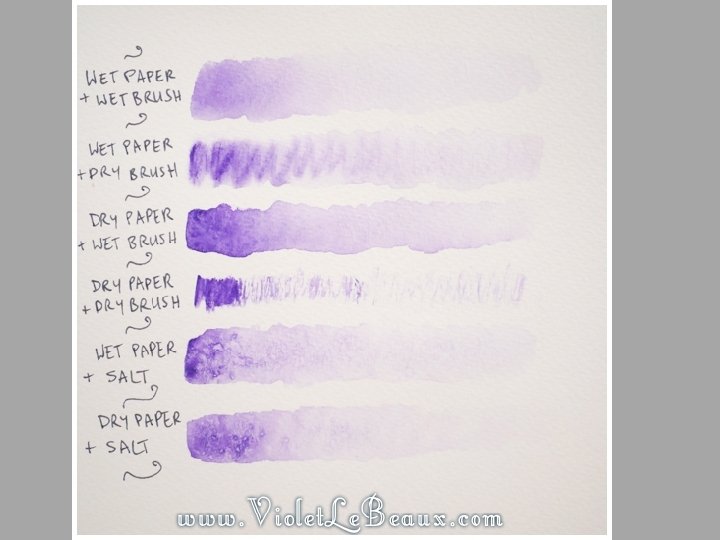 WET PAPER
+ WET BRUSH
WET PAPER
+ DRY BRUSH
DRY PAPER
+ WET BRUSH
DRY PAPER
+ DRY BRUSH
WET PAPER
+ SALT
DRY PAPER
+ SALT
www.VioletLeBeaux.com